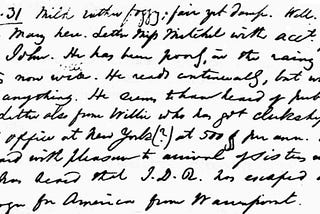 31 Mild rather foggy; fair yet damp. Well.
May here. Letter Miss Mitchel with acct.
John. He has been poorly in the rainy
now writes. He reads continually, but
anything. He seems to have heard of
letter also from Willie who has got clerkship
office at New York (?) at 500$ per ann.
with pleasure to arrival of sister
has heard that I.D.R. has escaped
for America from Warrenpoint.